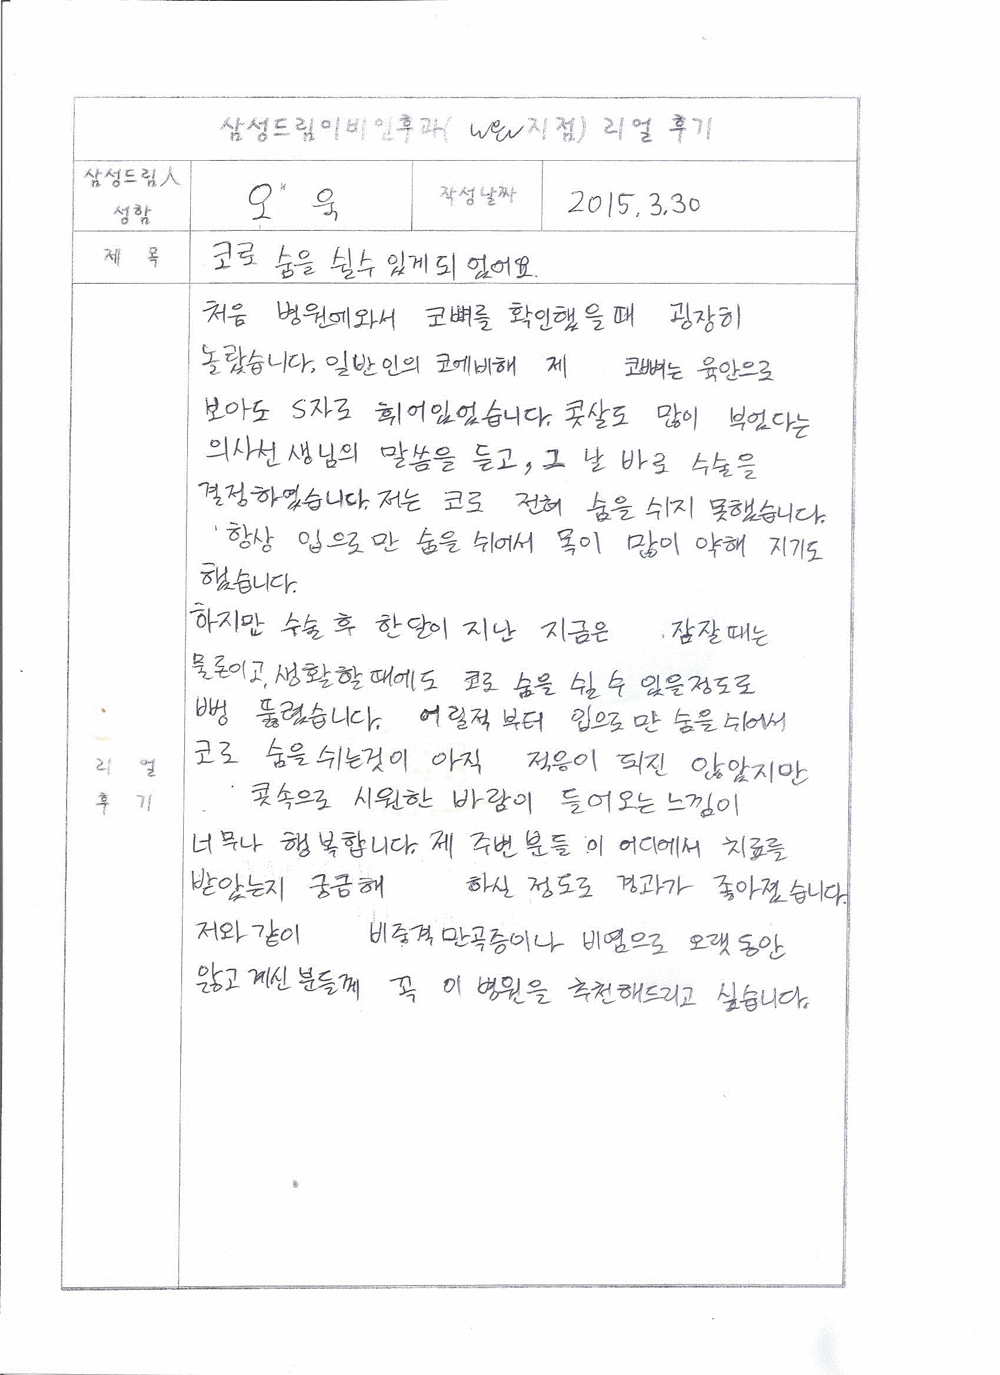 삼성드림이비인후과( 지점) 리얼 후기
삼성드림人
성함
오*욱
작성날짜
2015.3.30
제 목
코로 숨을 쉴수 있게되 었어요.
리 얼
후 기
처음 병원에와서 코뼈를 확인했을때 굉장히
놀랐습니다. 일반인의 코에비해 제 코뼈는 육안으로
보아도 S자로 휘어있었습니다. 콧살도 많이 부었다는
의사선생님의 말씀을 듣고, 그 날 바로 수술을
결정하였습니다. 저는 코로 전혀 숨을 쉬지 못했습니다.
항상 입으로만 숨을 쉬어서 목이 많이 약해 지기도
했습니다.
하지만 수술 후 한달이 지난 지금은 잠잘때는
물론이고, 생활할때에도 코로 숨을 쉴 수 있을정도로
뻥 뚫렸습니다. 어릴적부터 입으로만 숨을쉬어서
코로 숨을쉬는것이 아직 적응이 되진 않았지만
콧속으로 시원한 바람이 들어오는느낌이
너무나 행복합니다. 제 주변분들 의 어디에서 치료를
받았는지 궁금해 하실 정도로 경과가 좋아졌습니다.
저와같이 비중격만곡증이나 비염으로 오랫동안
앓고계신분들께 꼭 이 병원을 추천해드리고 싶습니다.